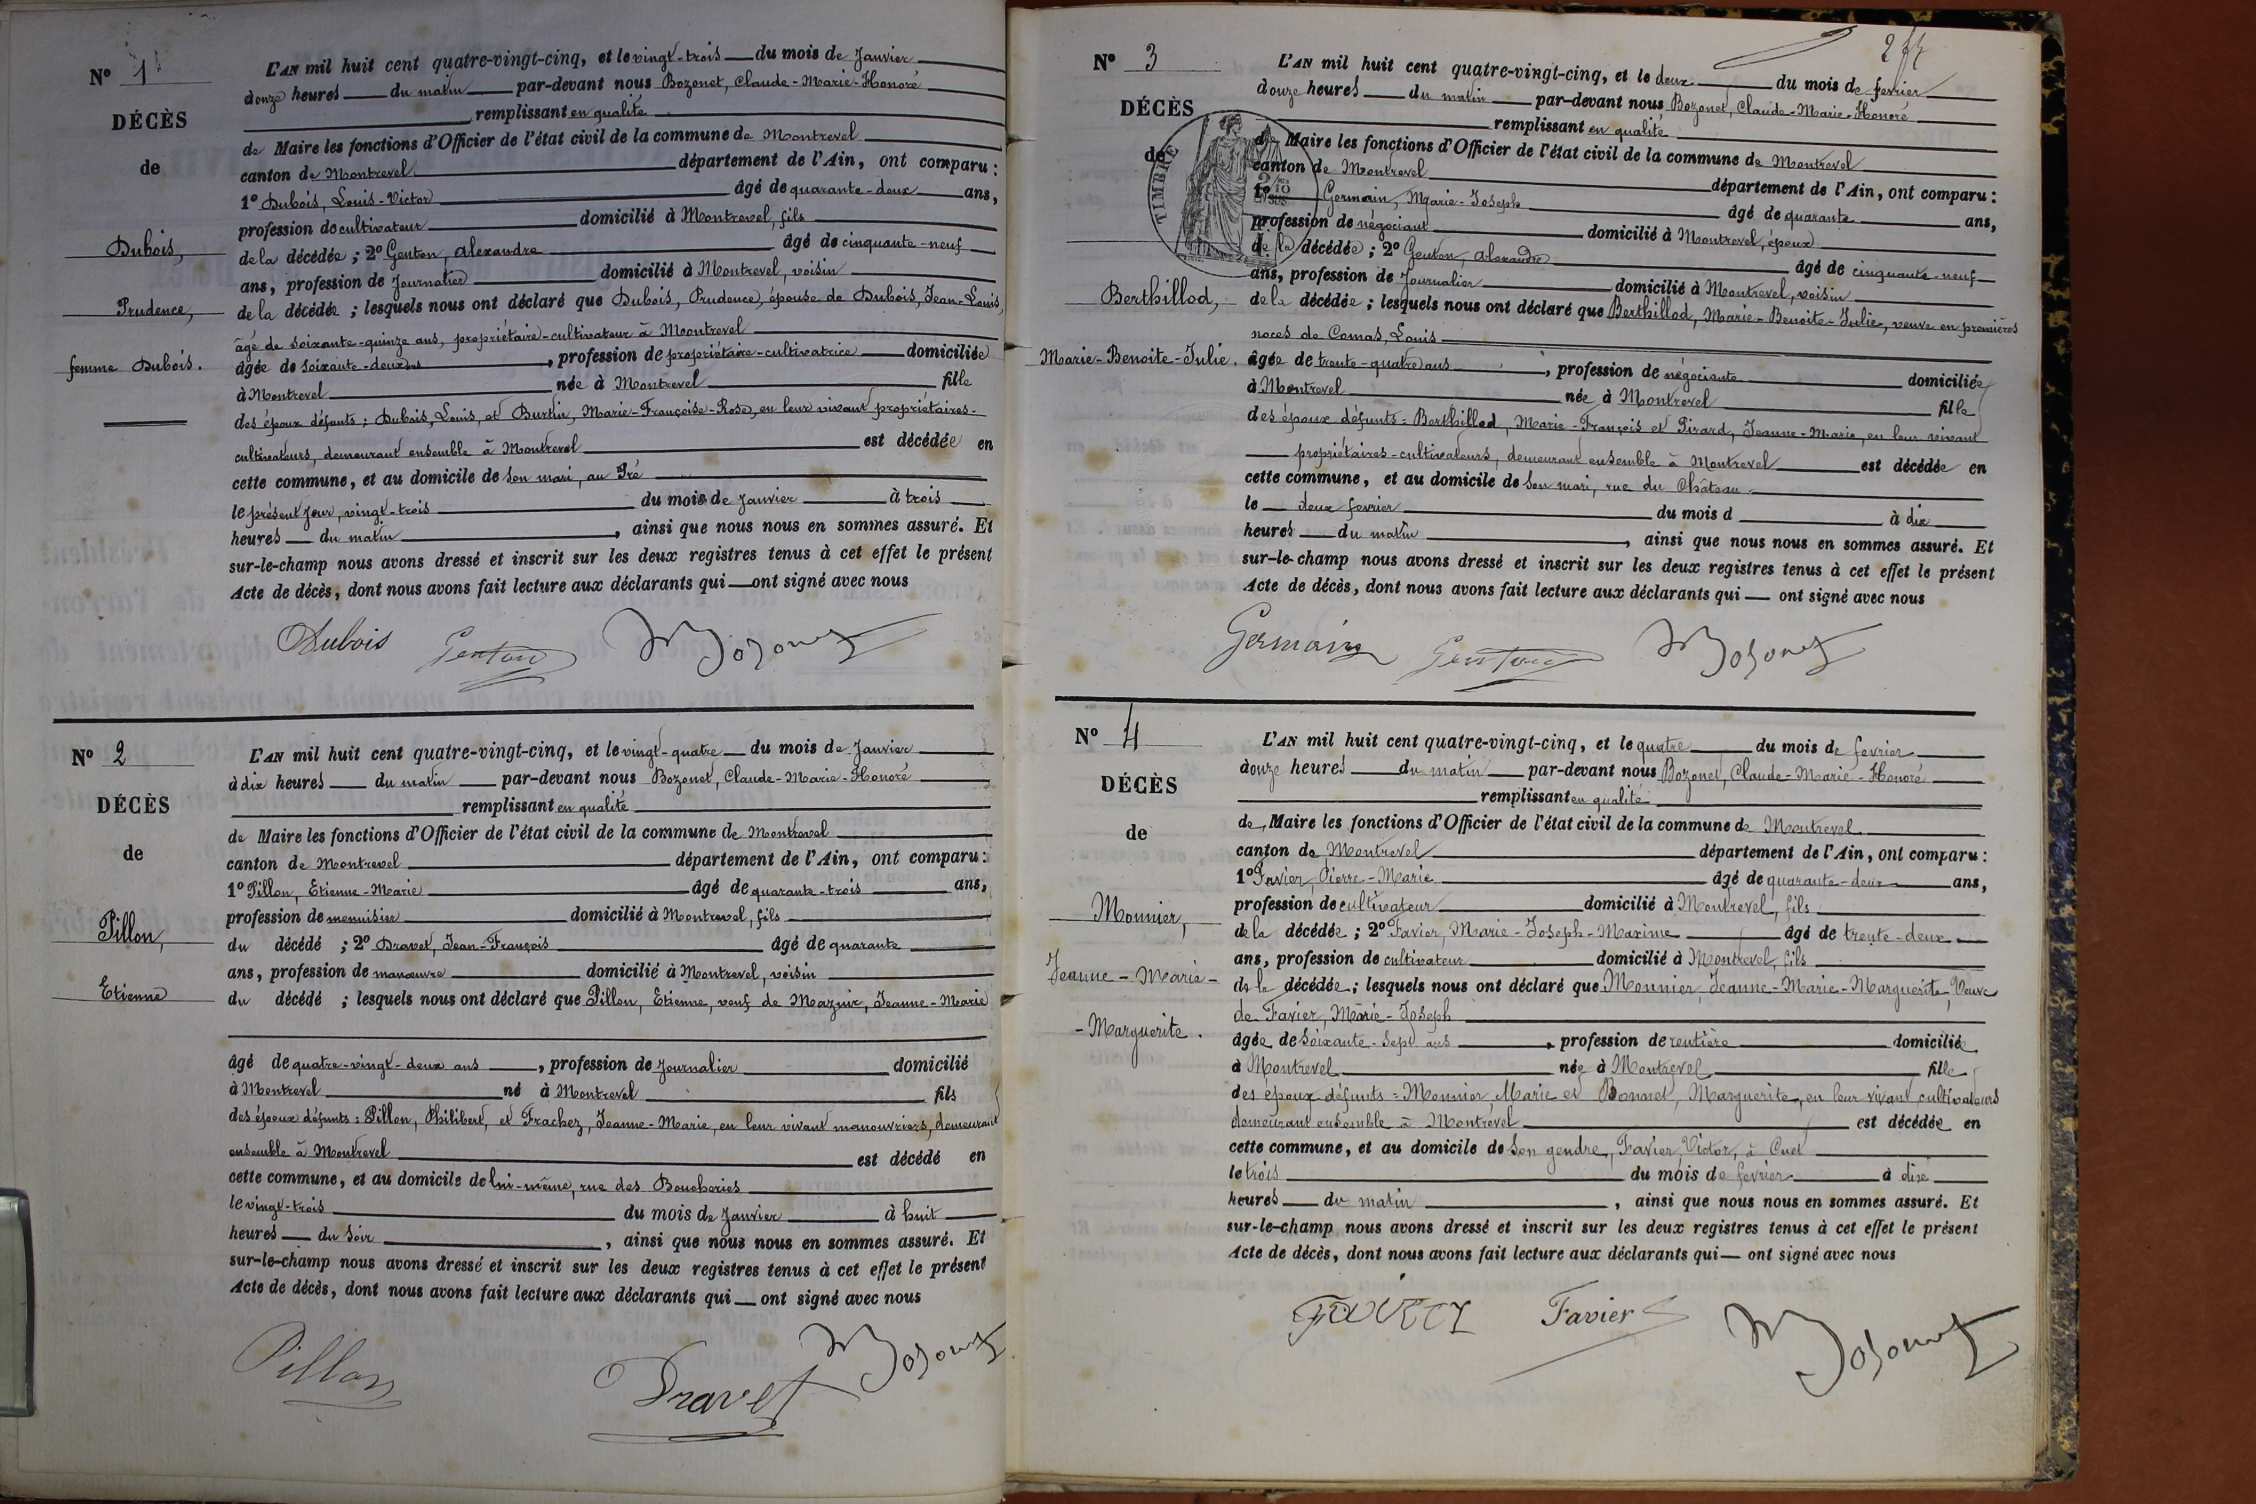 N° 1
DÉCÈS
de
Dubois,
Prudence,
femme Dubois.
L'AN mil huit cent quatre-vingt-cinq, et le vingt-trois du mois de Janvier
douze heures du matin par-devant nous Bozonet, Claude-Marie-Honoré
remplissant en qualité
de Maire les fonctions d'Officier de l'état civil de la commune de Montrevel
canton de Montrevel département de l'Ain, ont comparu :
1° Dubois, Louis-Victor âgé de quarante-deux ans,
profession de cultivateur domicilié à Montrevel, fils
de la décédée ; 2° Genton, Alexandre âgé de cinquante-neuf
ans, profession de Journalier domicilié à Montrevel, voisin
de la décédée ; lesquels nous ont déclaré que Dubois, Prudence, épouse de Dubois, Jean-Louis,
âgé de soixante-quinze ans, propriétaire-cultivateur à Montrevel
âgée de soixante-deux ans, profession de propriétaire-cultivatrice domiciliée
à Montrevel née à Montrevel fille
des époux défunts : Dubois, Louis, et Burtin, Marie-Françoise-Rose, en leur vivant propriétaires-
cultivateurs, demeurant ensemble à Montrevel est décédée en
cette commune, et au domicile de son mari, au Pré
le présent jour, vingt-trois du mois de Janvier à trois
heures du matin, ainsi que nous nous en sommes assuré. Et
sur-le-champ nous avons dressé et inscrit sur les deux registres tenus à cet effet le présent
Acte de décès, dont nous avons fait lecture aux déclarants qui ont signé avec nous
Dubois Genton Bozonet
N° 2
DÉCÈS
de
Pillon,
Etienne
L'AN mil huit cent quatre-vingt-cinq, et le vingt-quatre du mois de Janvier
à dix heures du matin par-devant nous Bozonet, Claude-Marie-Honoré
remplissant en qualité
de Maire les fonctions d'Officier de l'état civil de la commune de Montrevel
canton de Montrevel département de l'Ain, ont comparu :
1° Pillon, Etienne-Marie âgé de quarante-trois ans,
profession de menuisier domicilié à Montrevel, fils
du décédé ; 2° Dravet, Jean-François âgé de quarante
ans, profession de manœuvre domicilié à Montrevel, voisin
du décédé ; lesquels nous ont déclaré que Pillon, Etienne, veuf de Mazuir, Jeanne-Marie
âgé de quatre-vingt-deux ans, profession de Journalier domicilié
à Montrevel né à Montrevel fils
des époux défunts : Pillon, Philibert, et Frachez, Jeanne-Marie, en leur vivant manouvriers, demeurant
ensemble à Montrevel est décédé en
cette commune, et au domicile de lui-même, rue des Boucheries
le vingt-trois du mois de Janvier à huit
heures du soir, ainsi que nous nous en sommes assuré. Et
sur-le-champ nous avons dressé et inscrit sur les deux registres tenus à cet effet le présent
Acte de décès, dont nous avons fait lecture aux déclarants qui ont signé avec nous
Pillon Dravet Bozonet
N° 3
DÉCÈS
de
TIMBRE
Berthillod,
Marie-Benoite-Julie.
L'AN mil huit cent quatre-vingt-cinq, et le deux du mois de fevrier
douze heures du matin par-devant nous Bozonet, Claude-Marie-Honoré
remplissant en qualité
de Maire les fonctions d'Officier de l'état civil de la commune de Montrevel
canton de Montrevel département de l'Ain, ont comparu :
1° Germain, Marie-Joseph âgé de quarante ans,
profession de négociant domicilié à Montrevel, époux
de la décédée ; 2° Genton, Alexandre âgé de cinquante-neuf
ans, profession de Journalier domicilié à Montrevel, voisin
de la décédée ; lesquels nous ont déclaré que Berthillod, Marie-Benoite-Julie, veuve en premières
noces de Comas, Louis
âgée de trente-quatre ans, profession de négociante domiciliée
à Montrevel née à Montrevel fille
des époux défunts : Berthillod, Marie-François et Pirard, Jeanne-Marie, en leur vivant
propriétaires-cultivateurs, demeurant ensemble à Montrevel est décédée en
cette commune, et au domicile de son mari, rue du Château
le deux fevrier du mois d à dix
heures du matin, ainsi que nous nous en sommes assuré. Et
sur-le-champ nous avons dressé et inscrit sur les deux registres tenus à cet effet le présent
Acte de décès, dont nous avons fait lecture aux déclarants qui ont signé avec nous
Germain Genton Bozonet
N° 4
DÉCÈS
de
Monnier,
Jeanne-Marie-
-Marguerite.
L'AN mil huit cent quatre-vingt-cinq, et le quatre du mois de fevrier
douze heures du matin par-devant nous Bozonet, Claude-Marie-Honoré
remplissant en qualité
de Maire les fonctions d'Officier de l'état civil de la commune de Montrevel
canton de Montrevel département de l'Ain, ont comparu :
1° Favier, Pierre-Marie âgé de quarante-deux ans,
profession de cultivateur domicilié à Montrevel, fils
de la décédée ; 2° Favier, Marie-Joseph-Maxime âgé de trente-deux
ans, profession de cultivateur domicilié à Montrevel, fils
de la décédée ; lesquels nous ont déclaré que Monnier, Jeanne-Marie-Marguerite, Veuve
de Favier, Marie-Joseph
âgée de soixante-sept ans, profession de rentière domiciliée
à Montrevel née à Montrevel fille
des époux défunts : Monnier, Marie et Bonnet, Marguerite, en leur vivant cultivateurs
demeurant ensemble à Montrevel est décédée en
cette commune, et au domicile de son gendre, Favier, Victor, à Cuet
le trois du mois de fevrier à dix
heures du matin, ainsi que nous nous en sommes assuré. Et
sur-le-champ nous avons dressé et inscrit sur les deux registres tenus à cet effet le présent
Acte de décès, dont nous avons fait lecture aux déclarants qui ont signé avec nous
Favier Favier Bozonet